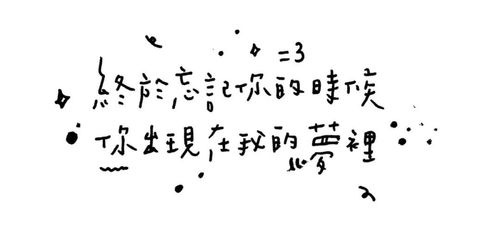 =3
終於忘記你的時候
你出現在我的夢裡